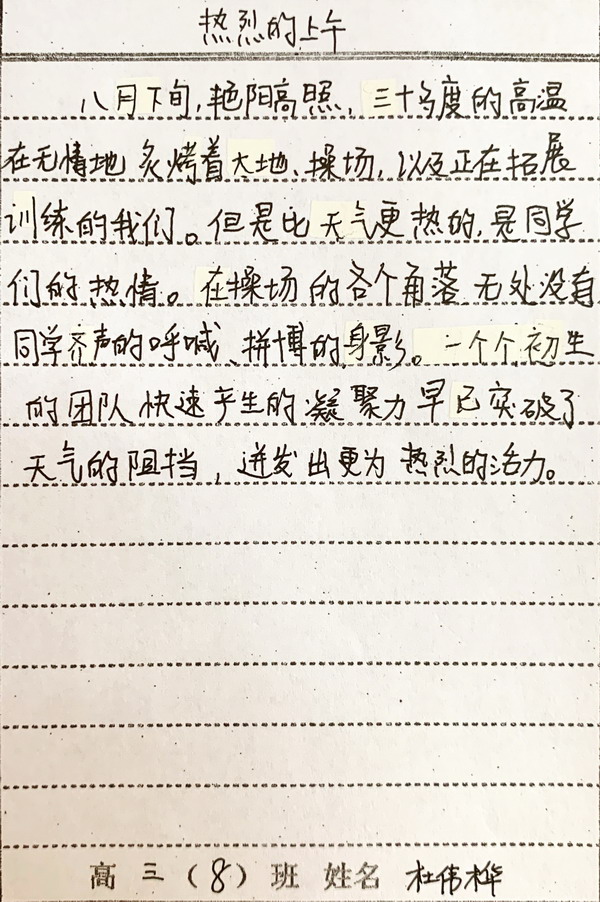 热烈的上午
八月下旬，艳阳高照，三十多度的高温
在无情地炙烤着大地、操场，以及正在拓展
训练的我们。但是比天气更热的，是同学
们的热情。在操场的各个角落无处没有
同学齐声的呼喊、拼搏的身影。一个个初生
的团队快速产生的凝聚力早已突破了
天气的阻挡，迸发出更为热烈的活力。
高三（8）班 姓名 杜伟桦